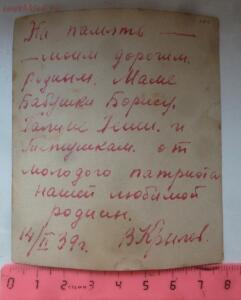 На память —
— моим дорогим
родным. Маме
Бабушки Борису.
Галине и
Тетушкам. от
молодого патриота
нашей любимой
родины.
14/II 39г. В.Крылов.
0 1 2 3 4 5 6 7 8